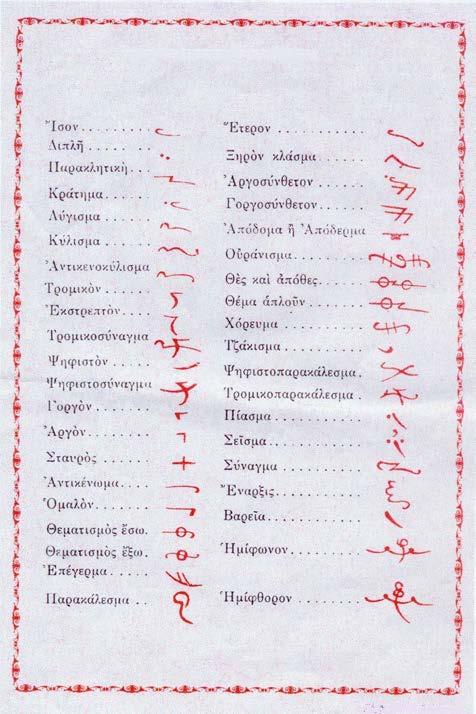 Ἴσον . . . . . . . .
Διπλῆ . . . . . . .
Παρακλητικὴ . . .
Κράτημα . . . . . .
Λύγισμα . . . . . .
Κύλισμα . . . . . .
Ἀντικενοκύλισμα
Τρομικὸν . . . . . .
Ἐκστρεπτὸν . . . .
Τρομικοσύναγμα
Ψηφιστὸν . . . . .
Ψηφιστοσύναγμα
Γοργὸν . . . . . . .
Ἀργὸν . . . . . . . .
Σταυρὸς . . . . . .
Ἀντικένωμα . . . .
Ὁμαλὸν . . . . . . .
Θεματισμὸς ἔσω.
Θεματισμὸς ἔξω.
Ἐπέγερμα . . . . .
Παρακάλεσμα . .
Ἕτερον . . . . . . . . . . .
Ξηρὸν κλάσμα . . . . . .
Ἀργοσύνθετον . . . . . .
Γοργοσύνθετον . . . . . .
Ἀπόδομα ἢ Ἀπόδερμα
Οὐράνισμα . . . . . . . .
Θὲς καὶ ἀπόθες . . . . . .
Θέμα ἁπλοῦν . . . . . . .
Χόρευμα . . . . . . . . . .
Τζάκισμα . . . . . . . . . .
Ψηφιστοπαρακάλεσμα .
Τρομικοπαρακάλεσμα .
Πίασμα . . . . . . . . . . .
Σεῖσμα . . . . . . . . . . .
Σύναγμα . . . . . . . . . .
Ἔναρξις . . . . . . . . . .
Βαρεῖα . . . . . . . . . . .
Ἡμίφωνον . . . . . . . . .
Ἡμίφθορον . . . . . . . .